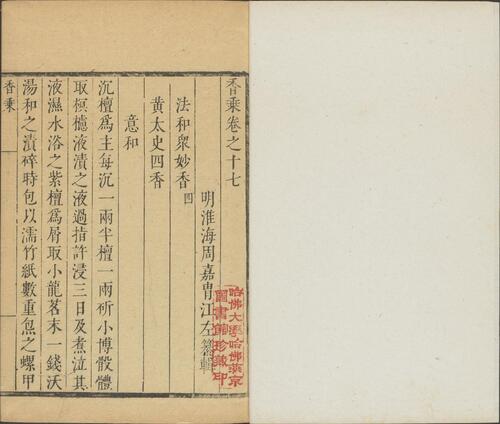 香乘卷之十七
明淮海周嘉胄江左纂輯
法和眾妙香四
黃太史四香
意和
沉檀為主每沉一兩半檀一兩斫小博骰體
取榠樝液漬之液過指許浸三日及煮泣其
液濕水浴之紫檀為屑取小龍茗末一錢沃
湯和之漬碎時包以濡竹紙數重炰之螺甲
香乘
哈佛大學哈佛燕京
圖書館珍藏印